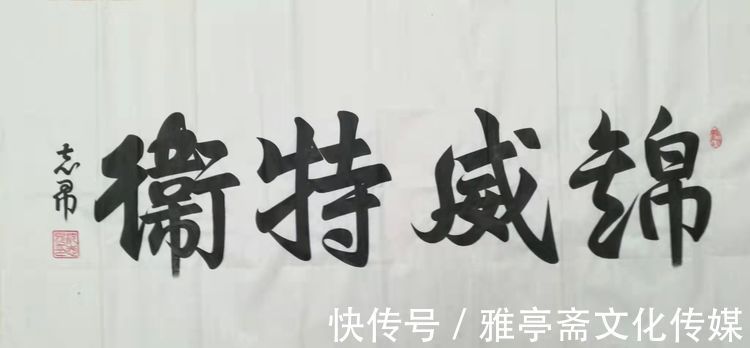 锦威特衞
志
快传号 / 雅亭斋文化传媒